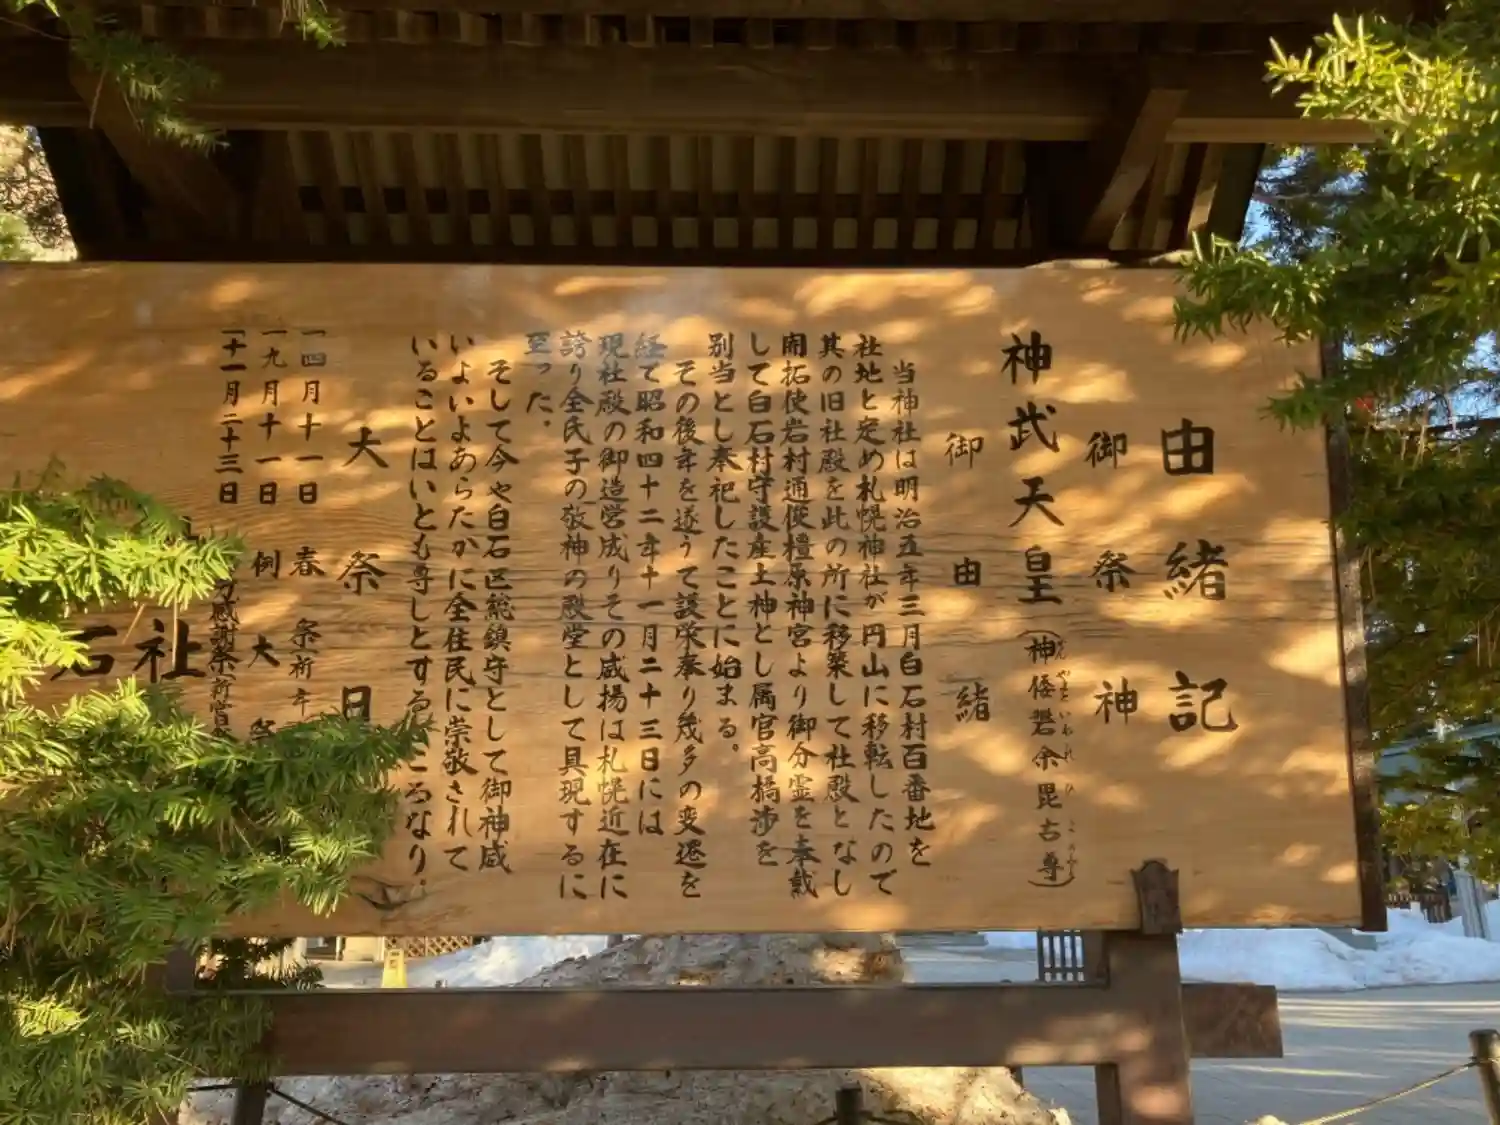 由緒記
御祭神
神武天皇(神倭磐余毘古尊)
かんやまといわれひこのみこと
御由緒
当神社は明治五年三月白石村百番地を
社地と定め札幌神社が円山に移転したので
其の旧社殿を此の所に移築して社殿となし
開拓使岩村通俊橿原神宮より御分霊を奉戴
して白石村守護産土神とし属官高橋渉を
別当とし奉祀したことに始まる。
その後年を遂うて護栄奉り幾多の変遷を
経て昭和四十二年十一月二十三日には
現社殿の御造営成りその威揚は札幌近在に
誇り全氏子の敬神の殿堂として具現するに
至った。
そして今や白石区総鎮守として御神威
いよいよあらたかに全住民に崇敬されて
いることはいとも尊しとするところなり。
大祭日
一四月十一日 春祭祈年
一九月十一日 例大祭
一十一月二十三日 感謝祭(新嘗祭
石社